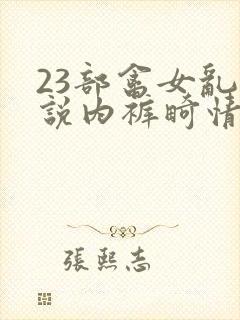 23部畜女乱
説内裤畸情
張熙志